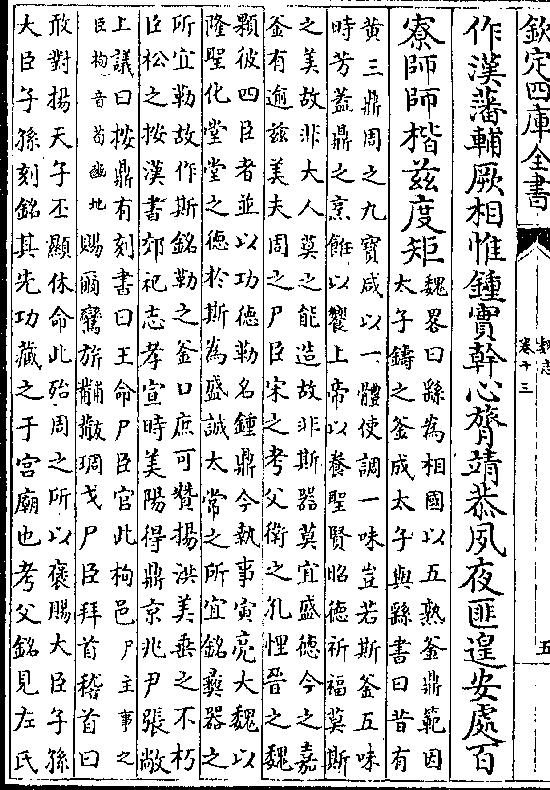 欽定四庫全書
魏志
卷十三
五
作漢藩輔厥相惟鍾實幹心膂靖恭夙夜匪遑安處百
寮師師楷兹度矩
魏畧曰繇為相國以五熟釜鼎範因
太子鑄之釜成太子與繇書曰昔有
黄三鼎周之九寶咸以一體使調一味豈若斯釜五味
時芳蓋鼎之烹飪以饗上帝以養聖賢昭德祈福莫斯
之美故非大人莫之能造故非斯器莫宜盛德今之嘉
釜有逾兹美夫周之尸臣宋之考父衛之孔悝晉之魏
顆彼四臣者並以功德勒名鍾鼎今執事寅亮大魏以
隆聖化堂堂之德於斯為盛誠太常之所宜銘彝器之
所宜勒故作斯銘勒之釜口庶可贊揚洪美垂之不朽
臣松之按漢書郊祀志孝宣時美陽得鼎京兆尹張敞
上議曰按鼎有刻書曰王命尸臣官此栒邑尸主事之
臣栒音荀豳地賜爾鸞旂黼黻琱戈尸臣拜首稽首曰
敢對揚天子丕顯休命此殆周之所以襃賜大臣子孫
大臣子孫刻銘其先功藏之于宫廟也考父銘見左氏